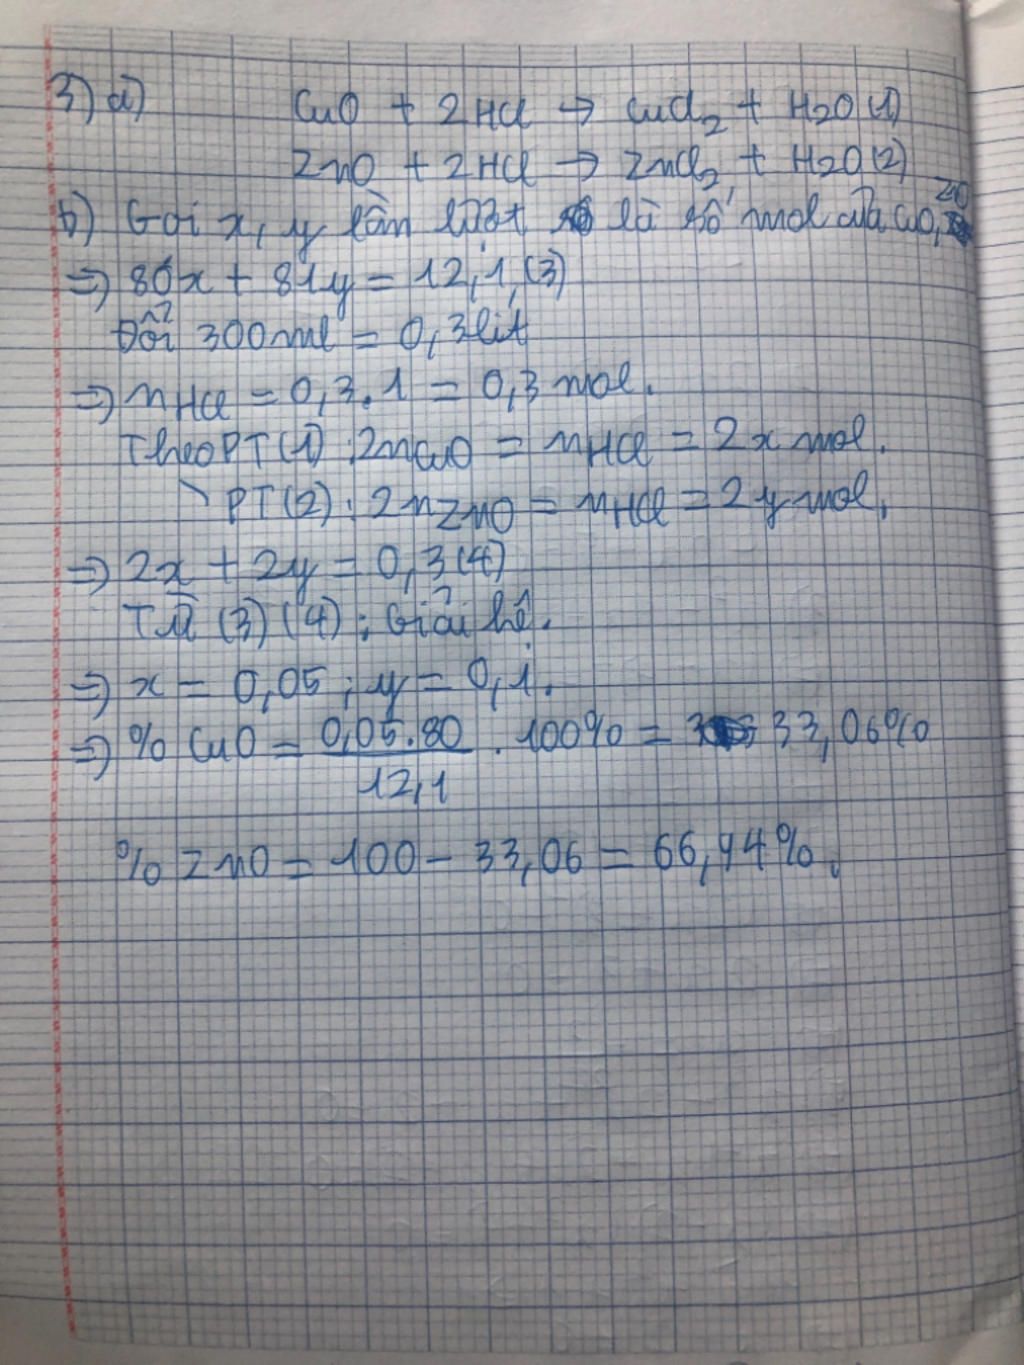 3) a) CuO + 2HCl → CuCl₂ + H₂O (1)
ZnO + 2HCl → ZnCl₂ + H₂O (2)
b) Gọi x, y lần lượt là số mol của CuO, ZnO
=> 80x + 81y = 12,1 (3)
Đổi 300ml = 0,3 lít
=> nHCl = 0,3.1 = 0,3 mol.
Theo PT (1) : 2nCuO = nHCl = 2x mol.
PT (2) : 2nZnO = nHCl = 2y mol.
=> 2x + 2y = 0,3 (4)
Từ (3) (4) ; Giải hệ.
=> x = 0,05 ; y = 0,1.
=> % CuO = 0,05.80 / 12,1 . 100% = 33,06%
% ZnO = 100 - 33,06 = 66,94%.